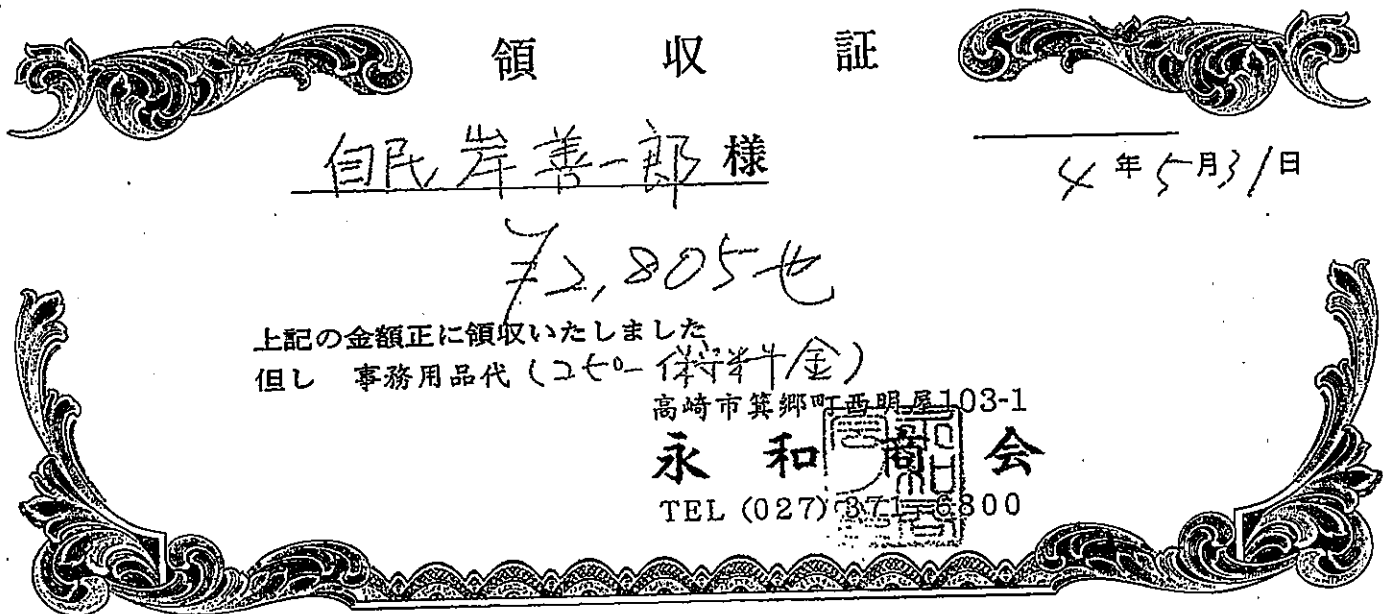 領収証
自民 岸善一郎 様
4年5月31日
¥2,805也
上記の金額正に領収いたしました
但し 事務用品代(コピー保守料金)
高崎市箕郷町西明屋103-1
永和商会
TEL (027) 371-6800